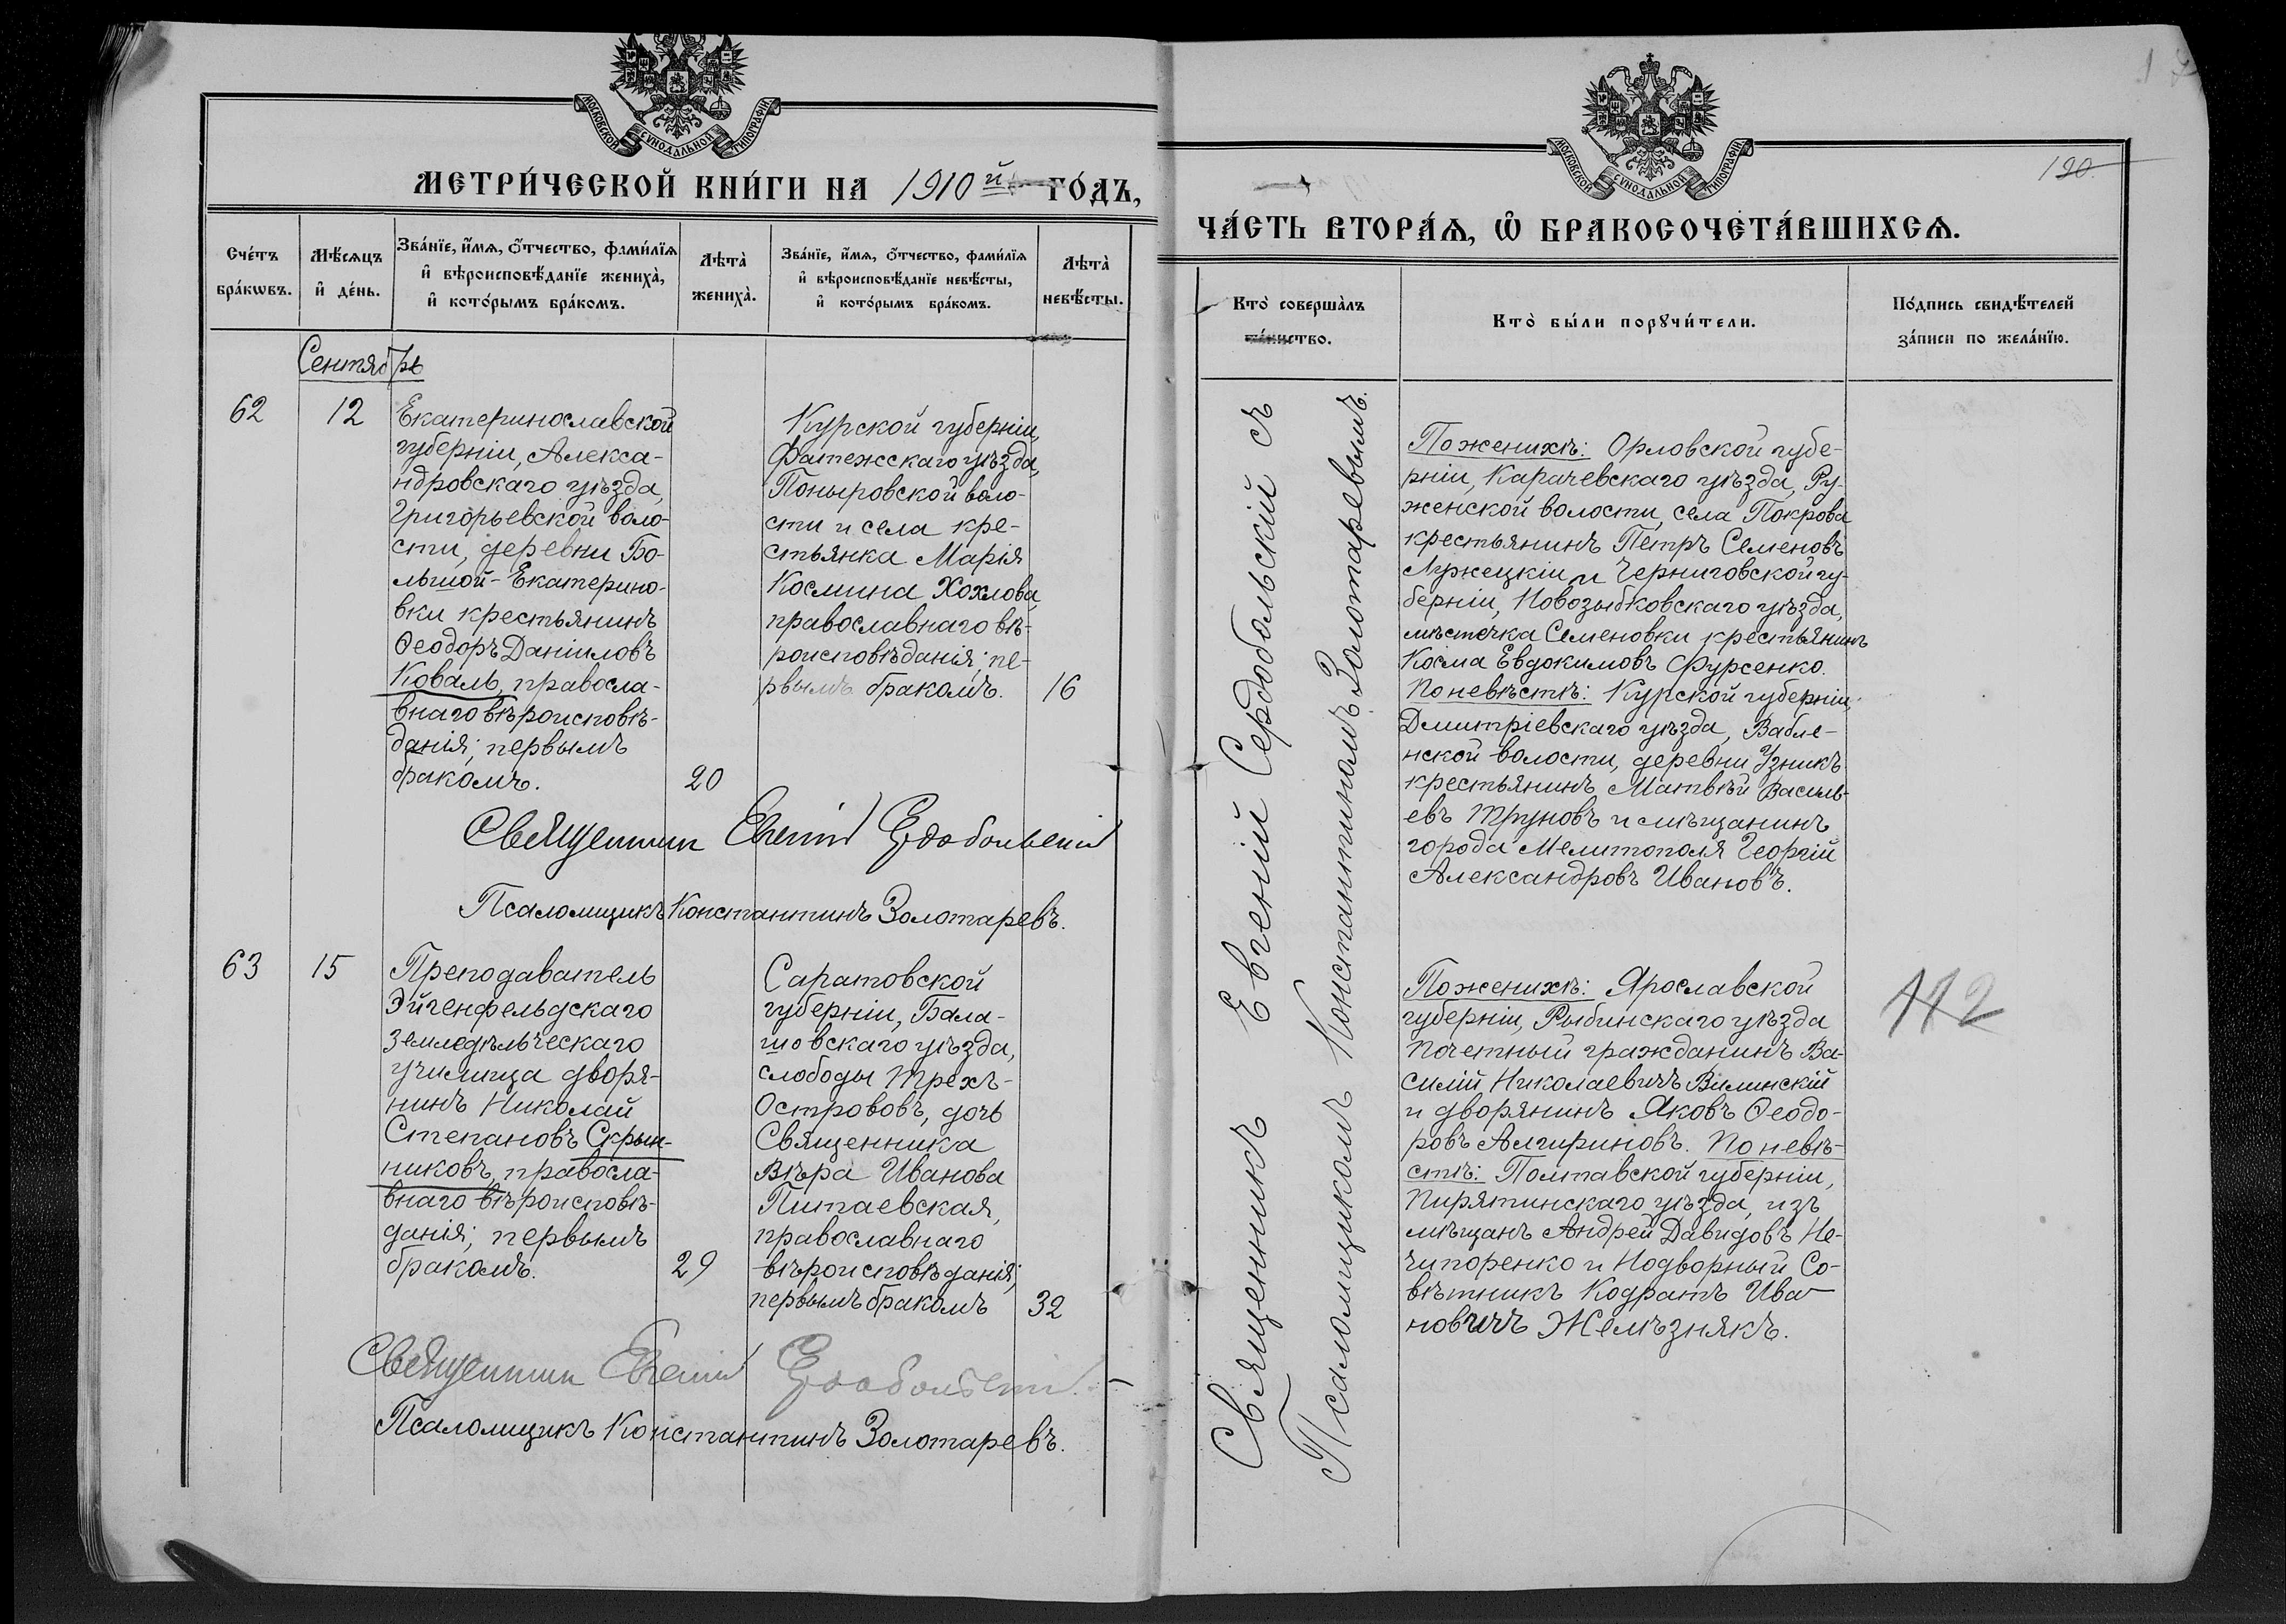 МОСКОВСКОЙ СѴНОДАЛЬНОЙ ТИПОГРАФІИ
МЕТРИ́ЧЕСКОЙ КНИ́ГИ НА 1910й ГО́ДЪ,
Сче́тъ бра́кѡвъ.
Мѣ́сѧцъ и҆ де́нь.
Зва́нїе, и҆́мѧ, ѻ҆́тчество, фами́лїѧ
и҆ вѣроисповѣ́данїе жениха̀,
и҆ кото́рымъ бра́комъ.
Лѣта̀ жениха̀.
Зва́нїе, и҆́мѧ, ѻ҆́тчество, фами́лїѧ
и҆ вѣроисповѣ́данїе невѣ́сты,
и҆ кото́рымъ бра́комъ.
Лѣта̀ невѣ́сты.
Сентябрь
62
12
Екатеринославской
губерніи, Алекса-
ндровскаго уѣзда,
Григорьевской воло-
сти, деревни Бо-
льшой-Екатерино-
вки крестьянинъ
Ѳеодоръ Даніиловъ
Коваль, правосла-
внаго вѣроисповѣ-
данія; первымъ
бракомъ.
20
Курской губерніи,
Фатежскаго уѣзда,
Поныровской воло-
сти и села кре-
стьянка Марія
Космина Хохлова,
православнаго вѣ-
роисповѣданія; пе-
рвымъ бракомъ.
16
Священникъ Евгеній Сердобольскій
Псаломщикъ Константинъ Золотаревъ.
63
15
Преподаватель
Эйгенфельдскаго
земледѣльческаго
училища дворя-
нинъ Николай
Степановъ Скрын-
никовъ, правосла-
внаго вѣроисповѣ-
данія; первымъ
бракомъ.
29
Саратовской
губерніи, Бала-
шовскаго уѣзда,
слободы Трехъ-
Острововъ, дочь
Священника
Вѣра Иванова
Питаевская,
православнаго
вѣроисповѣданія;
первымъ бракомъ
32
Священникъ Евгеній Сердобольскій
Псаломщикъ Константинъ Золотаревъ.
МОСКОВСКОЙ СѴНОДАЛЬНОЙ ТИПОГРАФІИ
190
ЧА́СТЬ ВТОРА́Ѧ, Ѡ҆ БРАКОСОЧЕТА́ВШИХСѦ.
Кто̀ соверша́лъ
та́инство.
Кто̀ бы́ли порꙋчи́тели.
По́дпись свидѣ́телей
за́писи по жела́нїю.
Священникъ Евгеній Сердобольскій съ
Псаломщикомъ Константиномъ Золотаревымъ.
По женихѣ: Орловской губе-
рніи, Карачевскаго уѣзда, Ру-
женской волости, села Покрова
крестьянинъ Петръ Семеновъ
Лужецкій и Черниговской гу-
берніи, Новозыбковскаго уѣзда,
мѣстечка Семеновки крестьянинъ
Косма Евдокимовъ Фурсенко.
По невѣстѣ: Курской губерніи,
Дмитріевскаго уѣзда, Вабле-
нской волости, деревни Узникъ
крестьянинъ Матвѣй Василь-
евъ Труновъ и мѣщанинъ
города Мелитополя Георгій
Александровъ Ивановъ.
По женихѣ: Ярославской
губерніи, Рыбинскаго уѣзда
почетный гражданинъ Ва-
силій Николаевичъ Вилинскій
и дворянинъ Яковъ Ѳеодо-
ровъ Алчириновъ. По невѣ-
стѣ: Полтавской губерніи,
Пирятинскаго уѣзда, изъ
мѣщанъ Андрей Давидовъ Не-
чипоренко и Надворный Со-
вѣтникъ Кодратъ Ива-
новичъ Желѣзнякъ.
112